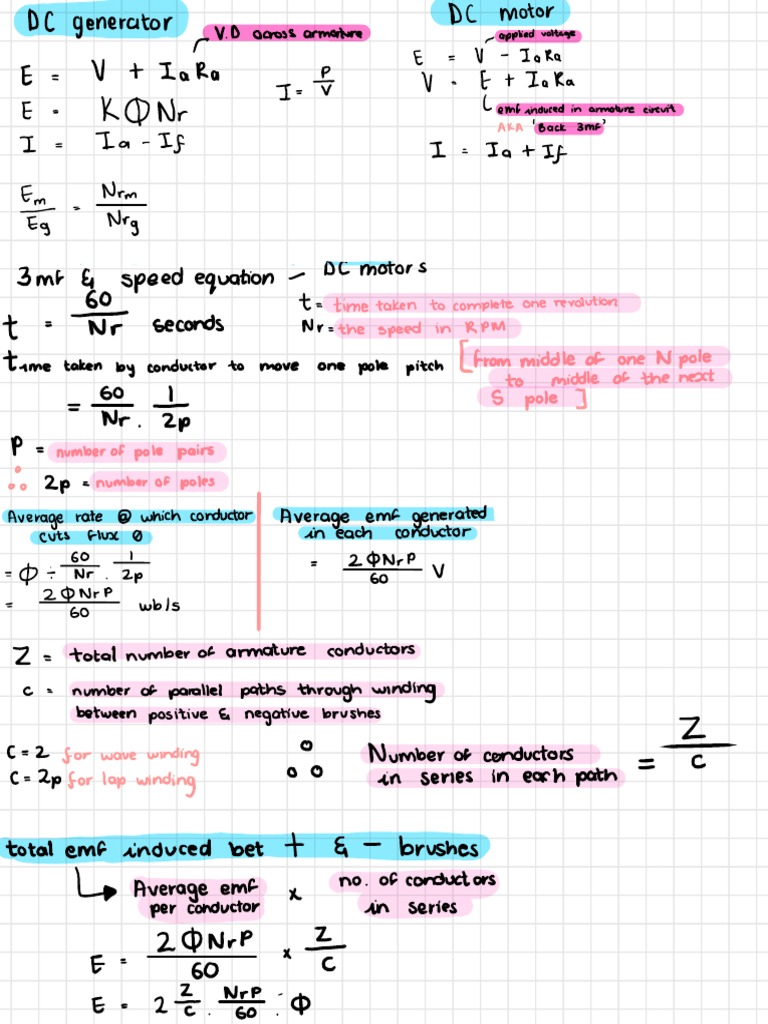 DC generator
V.D across armature
E = V + IaRa
I = P/V
E = KΦNr
I = Ia - If
Em/Eg = Nrm/Nrg
DC motor
applied voltage
E = V - IaRa
V = E + IaRa
emf induced in armature circuit
AKA 'Back 3mf'
I = Ia + If
3mf & speed equation - DC motors
t = 60/Nr seconds
t = time taken to complete one revolution
Nr = the speed in RPM
time taken by conductor to move one pole pitch [from middle of one N pole
to middle of the next
S pole]
= 60/Nr . 1/2p
P = number of pole pairs
∴ 2p = number of poles
Average rate @ which conductor
cuts flux Φ
= Φ ÷ 60/Nr . 1/2p
= 2ΦNrP/60 wb/s
Average emf generated
in each conductor
= 2ΦNrP/60 V
Z = total number of armature conductors
c = number of parallel paths through winding
between positive & negative brushes
C = 2 for wave winding
C = 2p for lap winding
∴ Number of conductors
in series in each path = Z/c
total emf induced bet + & - brushes
↳ Average emf
per conductor
x no. of conductors
in series
E = 2ΦNrP/60 x Z/C
E = 2 Z/C . NrP/60 . Φ